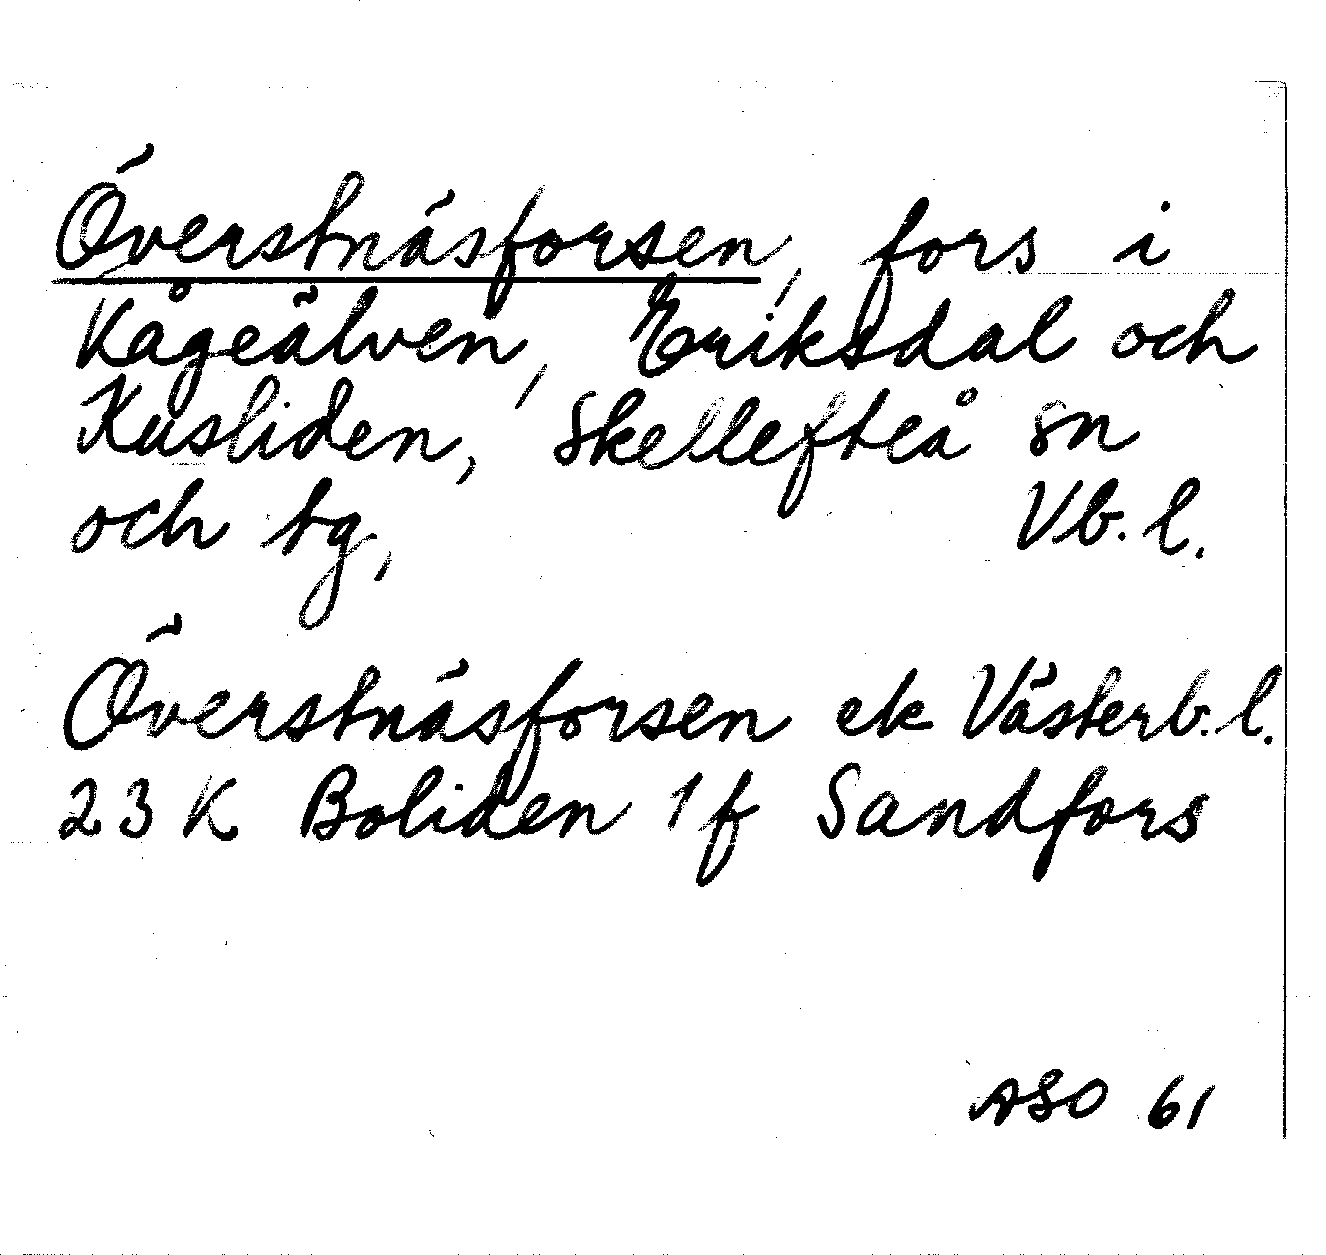 Överstnäsforsen, fors i
Kågeälven, Eriksdal och
Kusliden, Skellefteå sn
och tg, Vb. l.
Överstnäsforsen ek Västerb. l.
23 K Boliden 1 f Sandfors
ASO 61